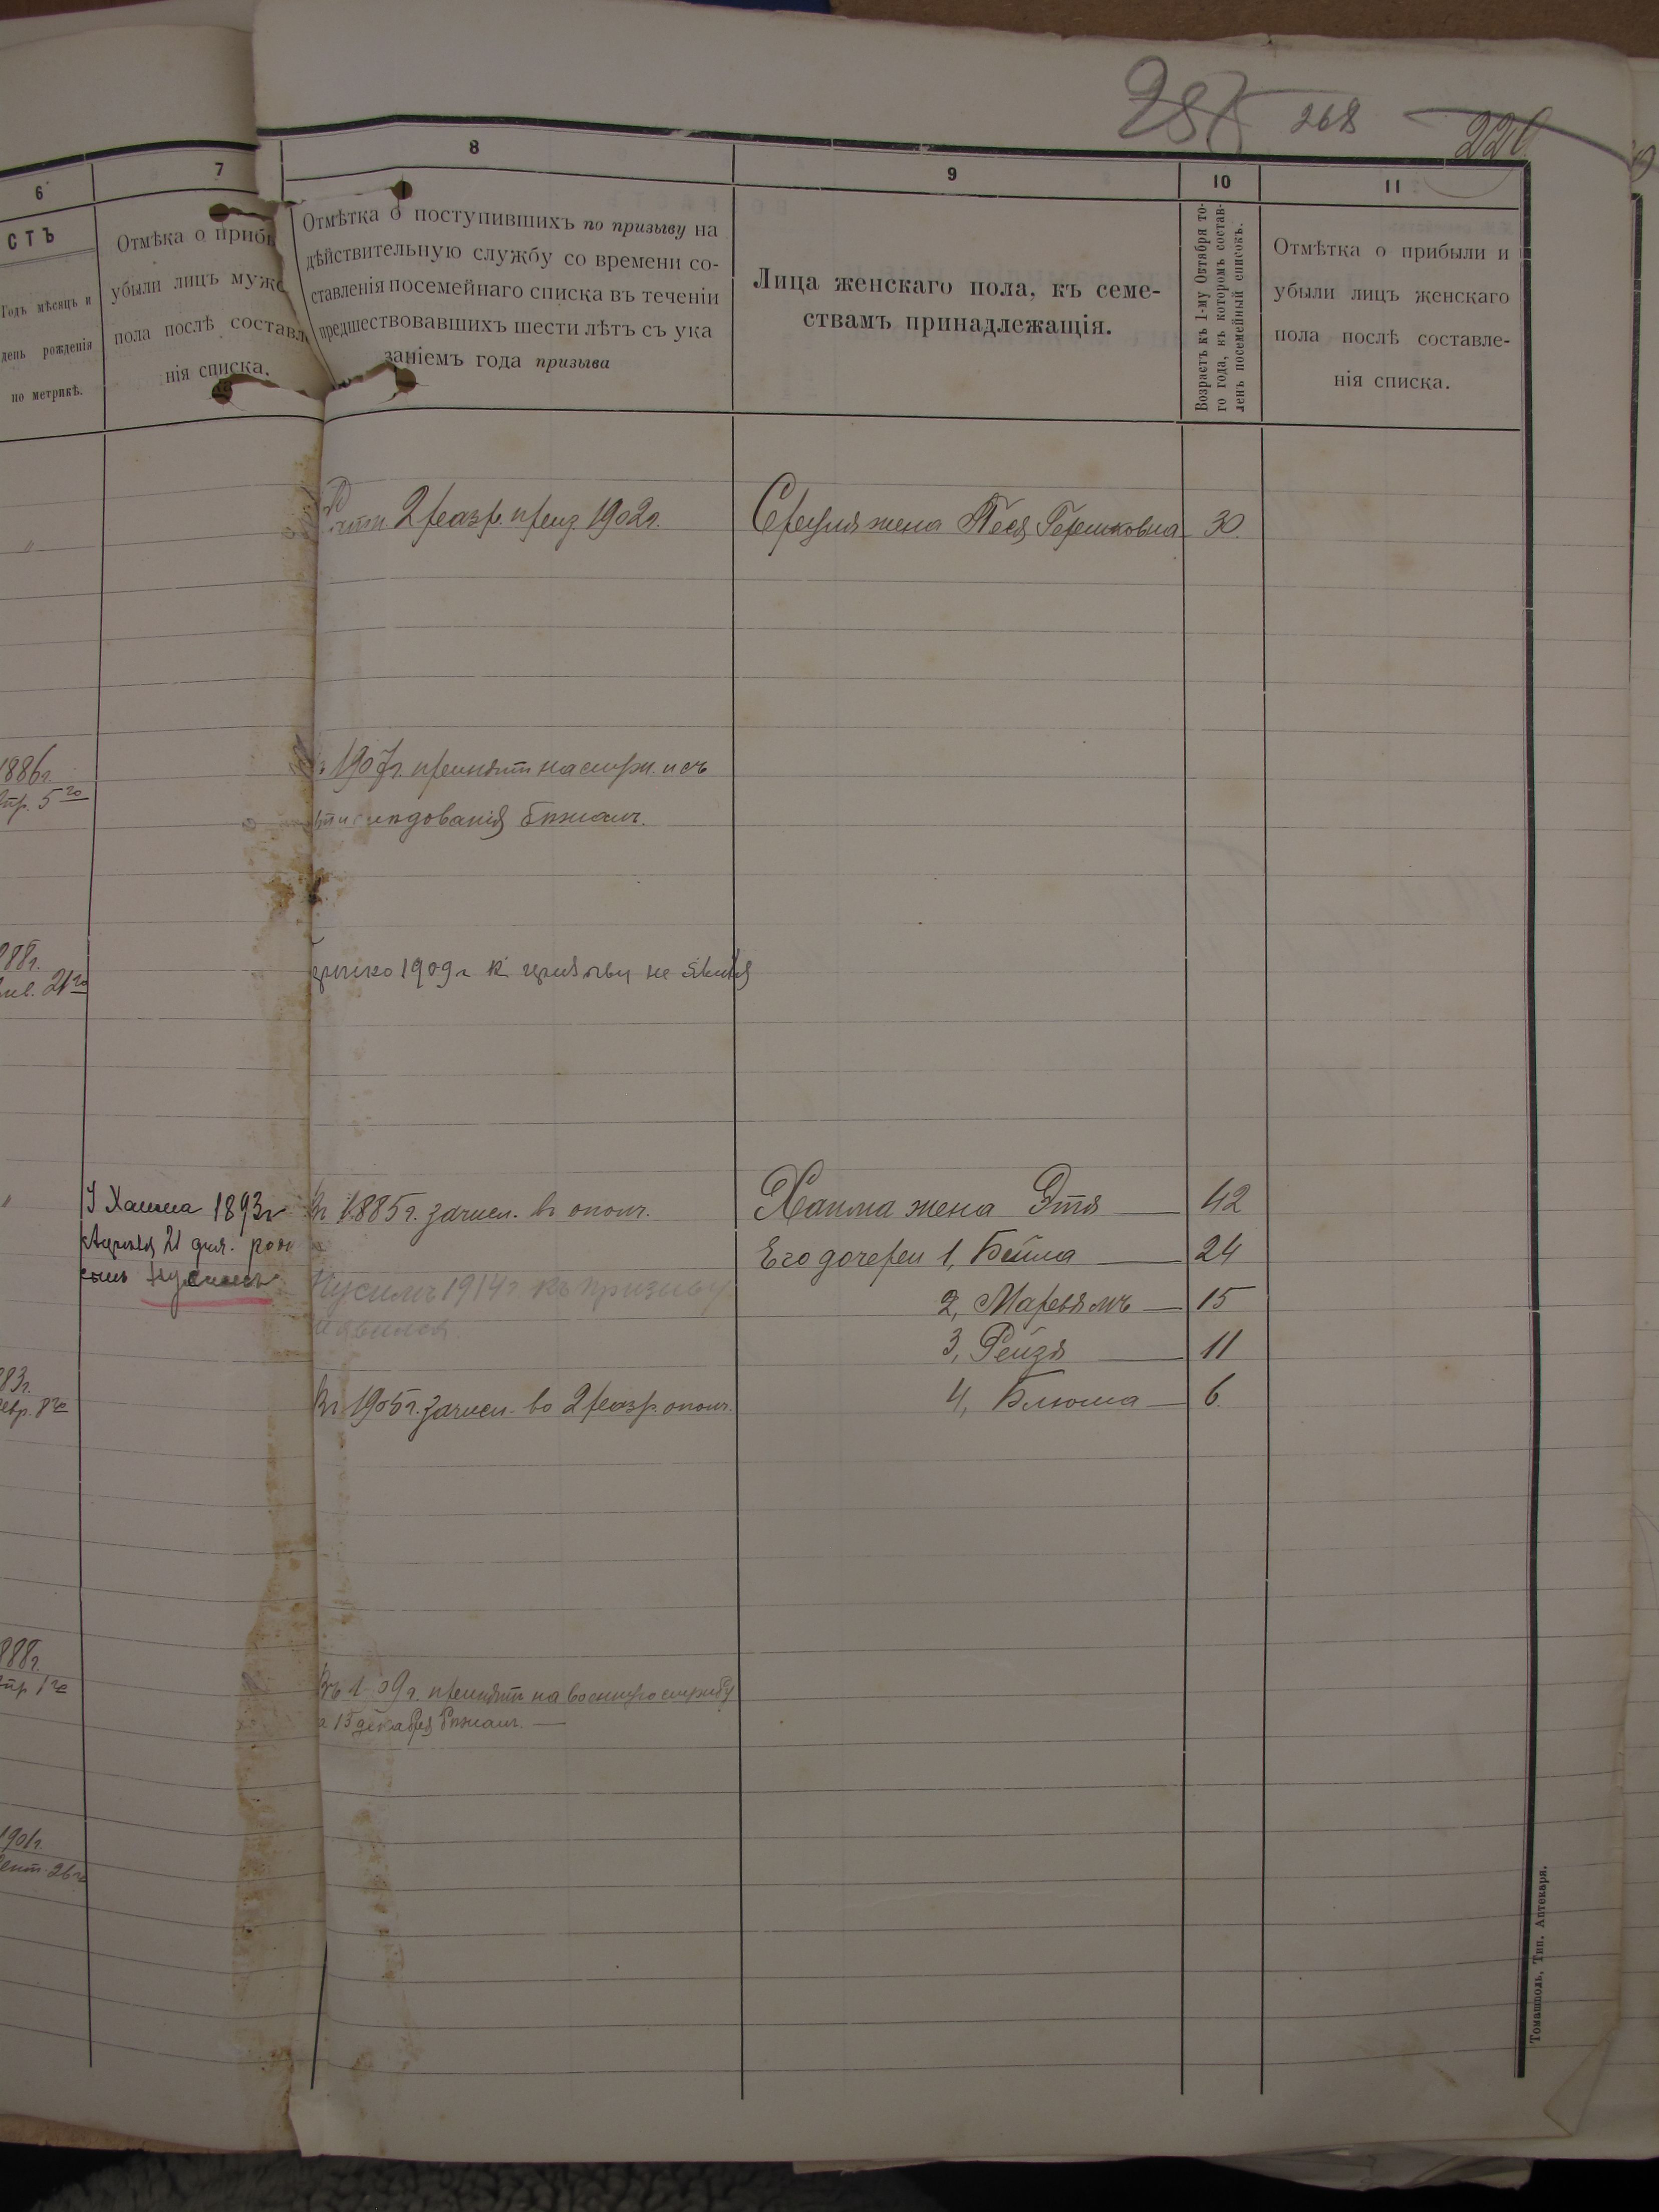 268
220
6
7
8
9
10
11
СТЪ
Годъ мѣсяцъ и
день рожденія
по метрикѣ.
Отмѣка о приб
убыли лицъ мужс
пола послѣ составл
нія списка.
Отмѣтка о поступившихъ по призыву на
дѣйствительную службу со времени со-
ставленія посемейнаго списка въ теченіи
предшествовавшихъ шести лѣтъ съ ука
заніемъ года призыва
Лица женскаго пола, къ семе-
ствамъ принадлежащія.
Возрастъ къ 1-му Октября то-
го года, въ которомъ состав-
ленъ посемейный списокъ.
Отмѣтка о прибыли и
убыли лицъ женскаго
пола послѣ составле-
нія списка.
2 разр. 1902г.
Сруля жена Песя Гершковна 30
1886г.
Апр. 5го
1907г. принятъ на служ. и съ
слѣдованія бѣжалъ.
888г.
21го
1909 г к призыву не явился
У Хаима 1893г
Апрѣля 21 дня. род
сынъ Нусимъ
Въ 1885г. зачисл. въ ополч.
Нусимъ 1914г. къ призыву
явился.
Хаима жена Этя 42
Его дочери 1, Бейла 24
2, Марьямъ 15
3, Рейзя 11
4, Блюма 6
83г.
евр. 8го
Въ 1905г. зачисл. во 2 разр. ополч.
888г.
Апр 1го
Въ 1 09г. принятъ на военную службу
а 15 декабря бѣжалъ.
1901г.
Сент. 26го
Томашполь, Тип. Аптекаря.